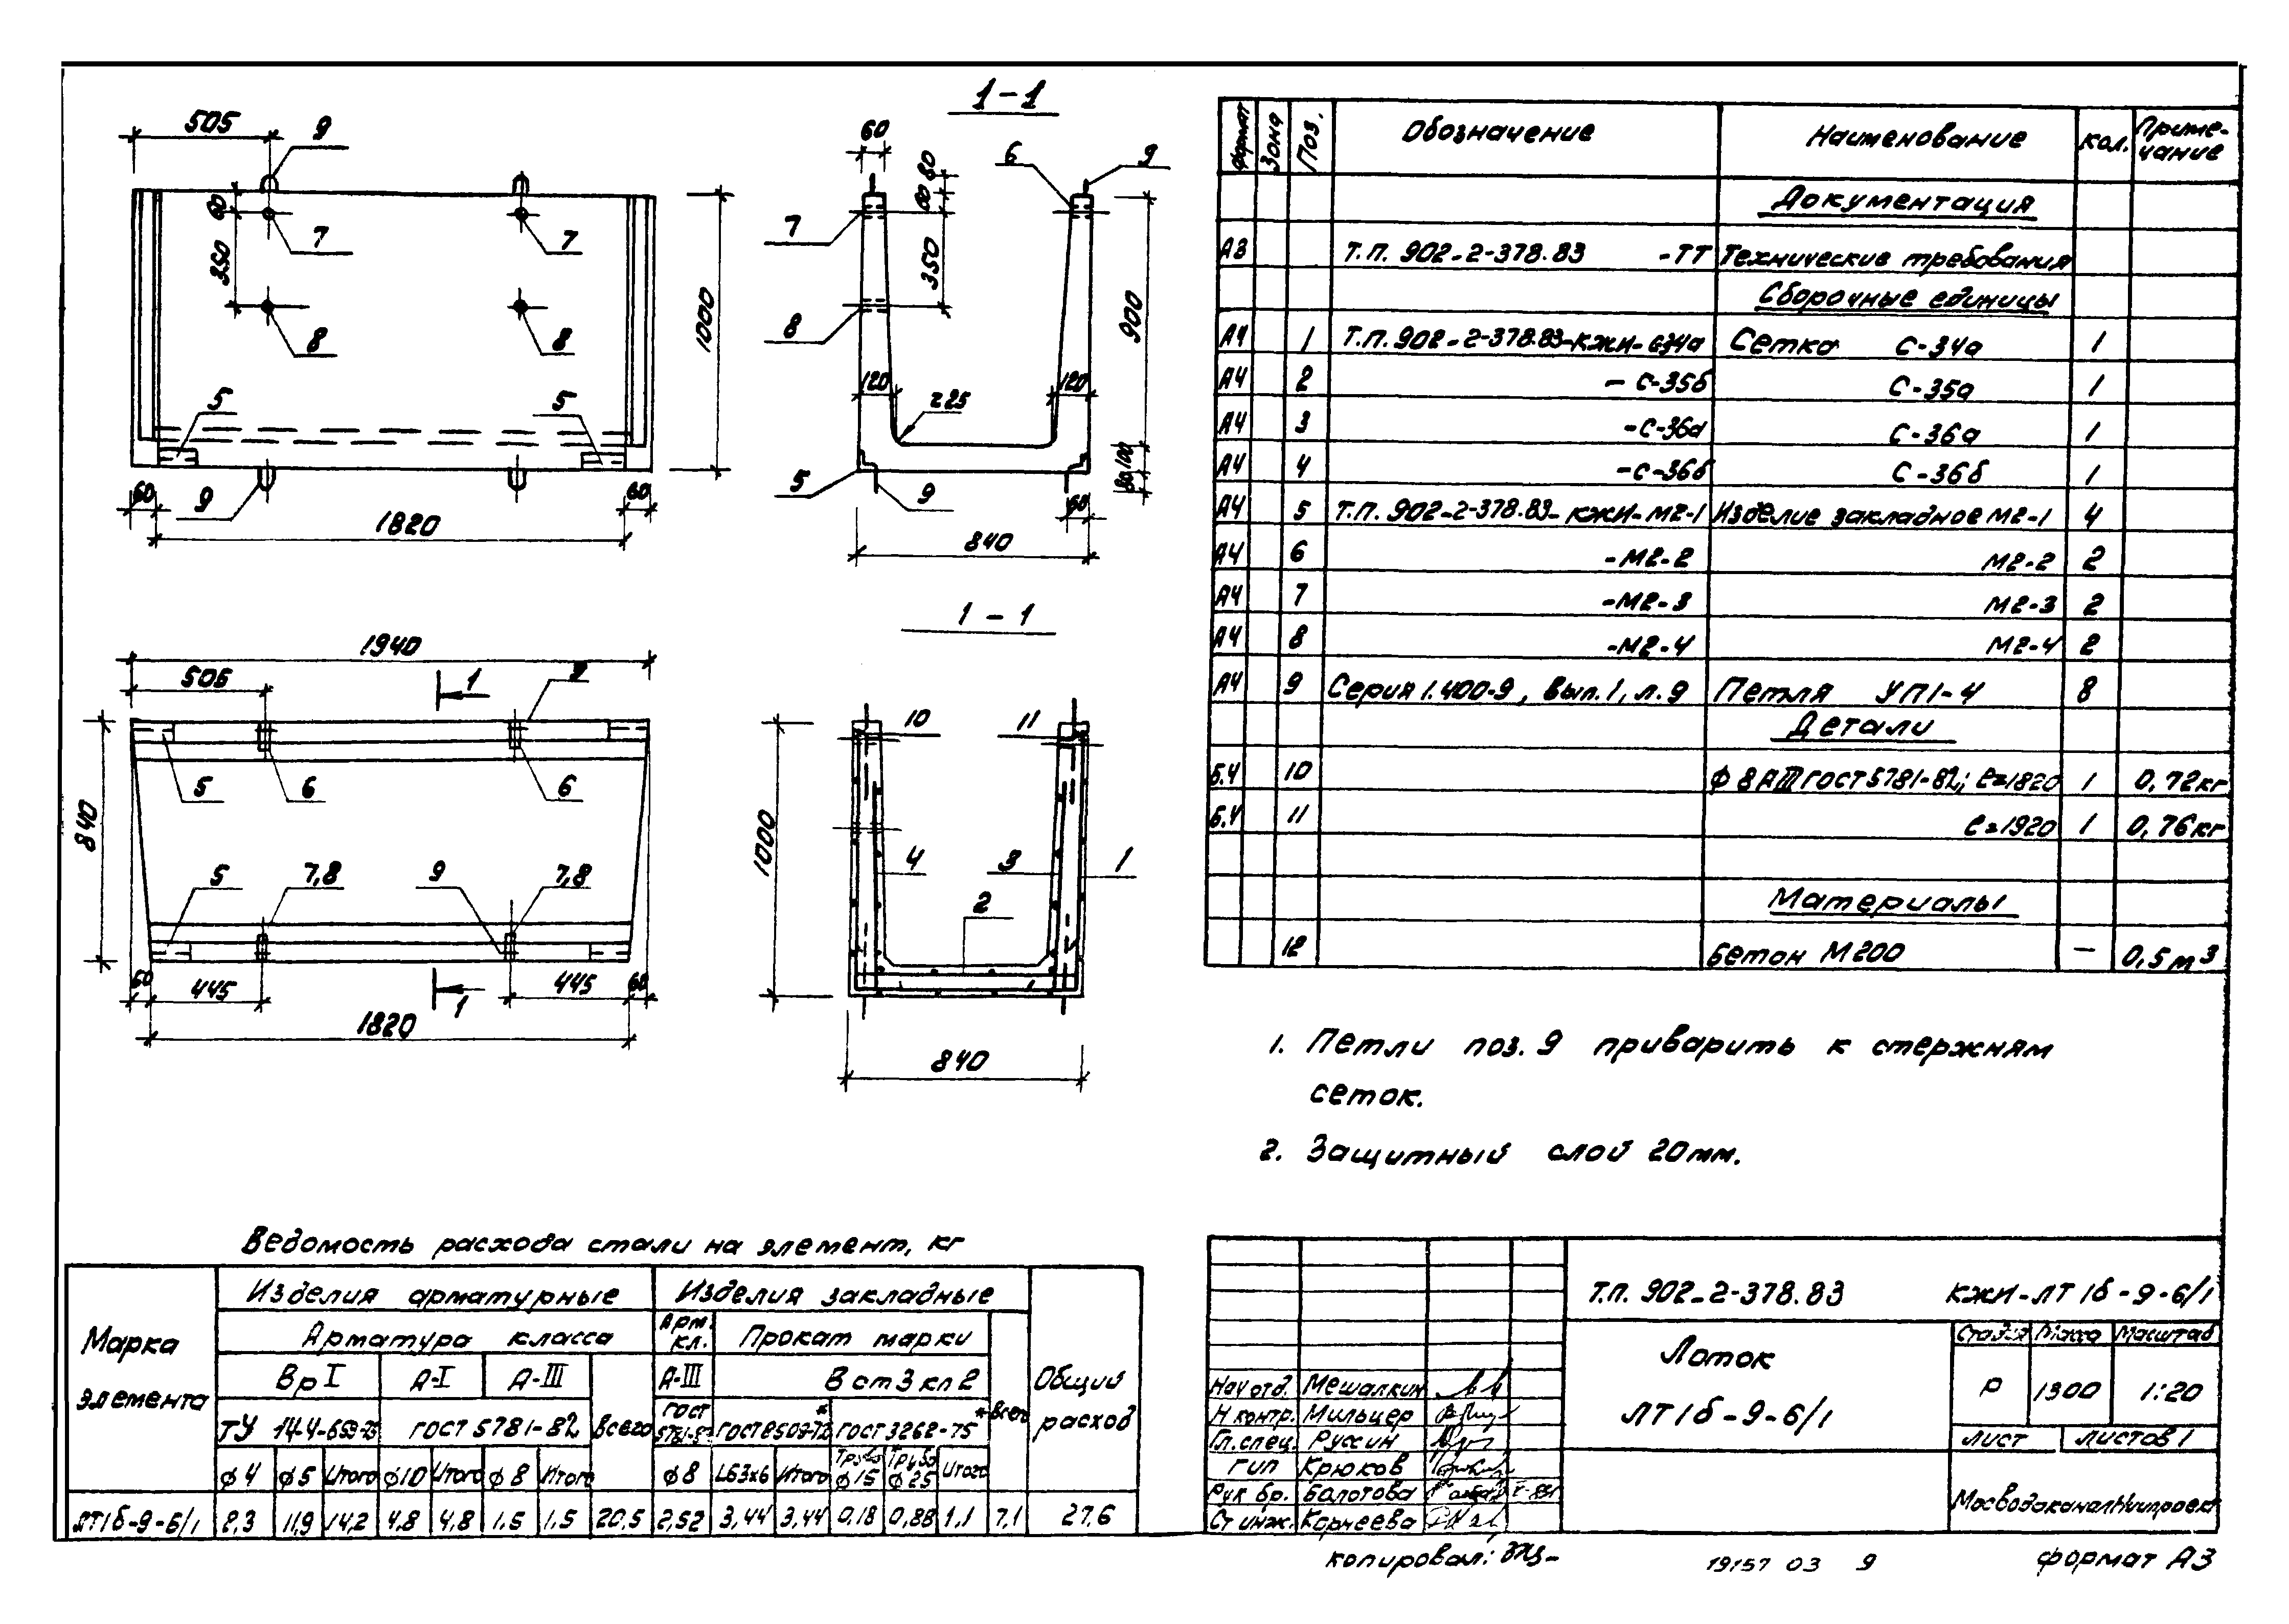 505
9
60
350
7
7
8
8
5
5
9
60
60
1820
1000
1-1
60
80
60
6
9
7
350
8
900
120
120
r25
5
9
100
80
60
840
1-1
1940
505
1
9
5
6
6
840
5
7,8
9
7,8
60
445
1
445
60
1820
10
11
1000
4
3
1
2
840
Формат Зона Поз. Обозначение Наименование Кол. Приме-
чание
Документация
А3 Т.П. 902-2-378.83 -ТТ Технические требования
Сборочные единицы
А4 1 Т.П. 902-2-378.83-КЖИ-С34а Сетка С-34а 1
А4 2 -С-35б С-35а 1
А4 3 -С-36а С-36а 1
А4 4 -С-36б С-36б 1
А4 5 Т.П. 902-2-378.83-КЖИ-М2-1 Изделие закладное М2-1 4
А4 6 -М2-2 М2-2 2
А4 7 -М2-3 М2-3 2
А4 8 -М2-4 М2-4 2
А4 9 Серия 1.400-9, Вып.1, л.9 Петля УП1-4 8
Детали
Б.Ч 10 ф 8 АIII ГОСТ 5781-82; ℓ=1820 1 0,72кг
Б.Ч 11 ℓ=1920 1 0,76кг
Материалы
12 Бетон М200 — 0,5м³
1. Петли поз. 9 приварить к стержням
сеток.
2. Защитный слой 20мм.
Ведомость расхода стали на элемент, кг
Марка элемента Изделия арматурные Изделия закладные Общий расход
Арматура класса Арм. кл. Прокат марки Всего
Вр I А-I А-III Всего А-III Вст3кп2
ТУ 14-4-659-75 ГОСТ 5781-82 ГОСТ 5781-82 ГОСТ 8509-72* ГОСТ 3262-75*
ф4 ф5 Итого ф10 Итого ф8 Итого ф8 L63х6 Итого Труба ф15 Труба ф25 Итого
ЛТ1б-9-6/1 2,3 11,9 14,2 4,8 4,8 1.5 1.5 20,5 2,52 3,44 3,44 0,18 0,88 1,1 7,1 27,6
Т.П. 902-2-378.83 КЖИ-ЛТ1б-9-6/1
Лоток
ЛТ1б-9-6/1
Стадия Масса Масштаб
Р 1300 1:20
Лист Листов 1
Мосводоканалниипроект
Нач отд. Мешалкин
Н контр. Мильцер
Гл. спец. Руссин
ГИП Крюков
Рук бр. Болотова
Ст инж. Корнеева
копировал:
19157 03 9
формат А3